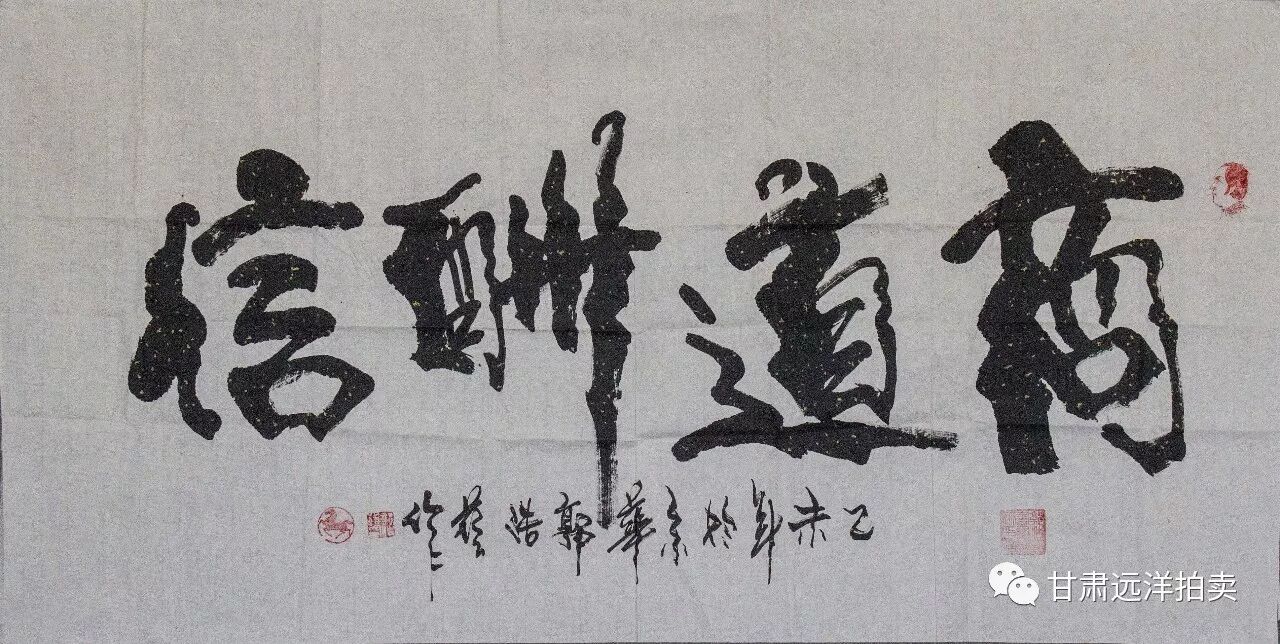 商道酬信
未年於京華郭浩藝
甘肃远洋拍卖